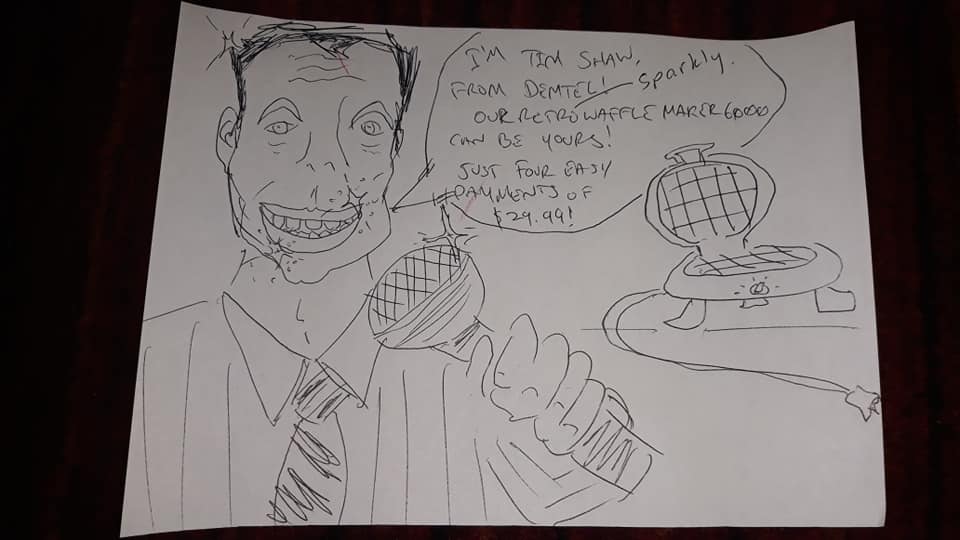 I'M TIM SHAW,
FROM DEMTEL!
sparkly.
OUR RETRO WAFFLE MAKER 6000
CAN BE YOURS!
JUST FOUR EASY
PAMMENTS OF
$29.99!